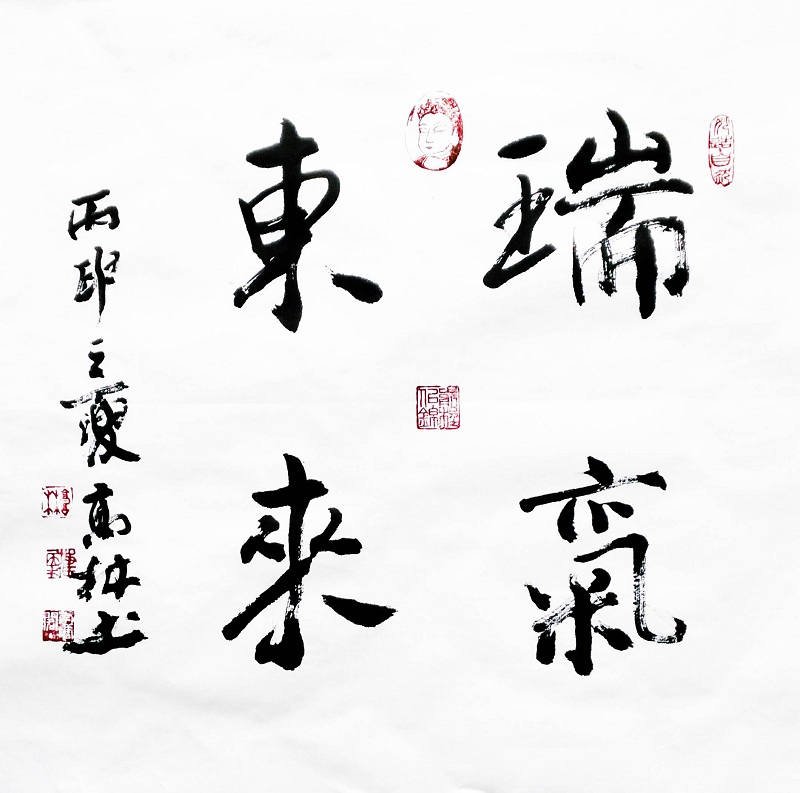 瑞氣
東來
丙申之夏高林书